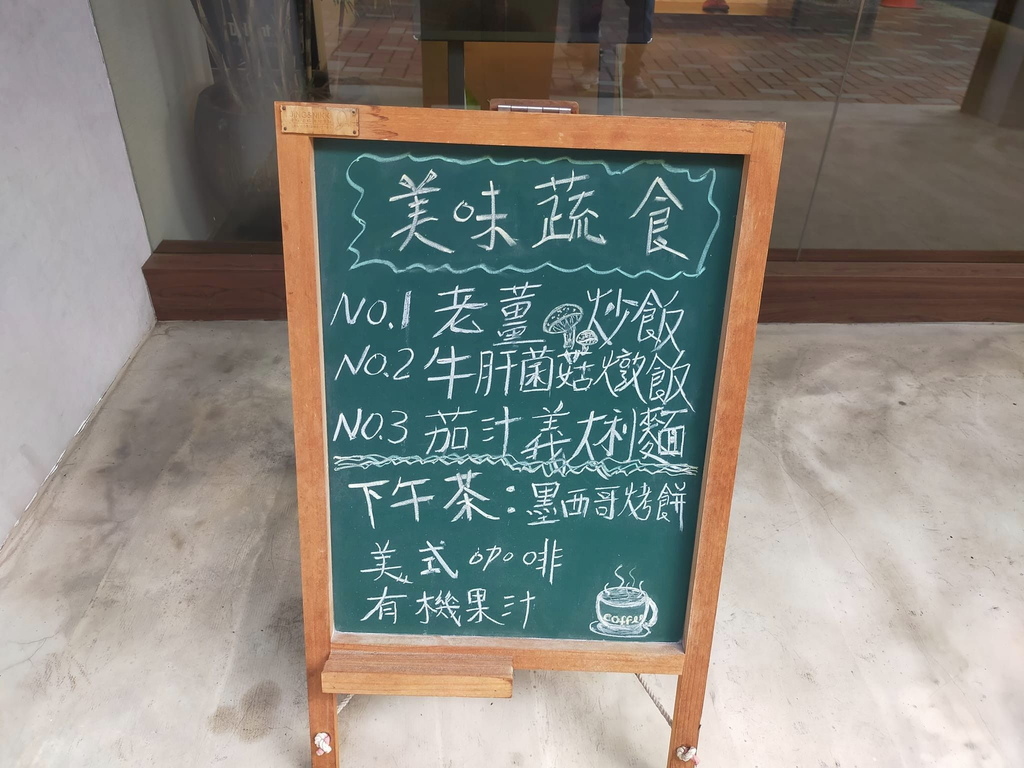 美味蔬食
NO.1 老薑炒飯
NO.2 牛肝菌菇燉飯
NO.3 茄汁義大利麵
下午茶：墨西哥烤餅
美式咖啡
有機果汁
COFFEE